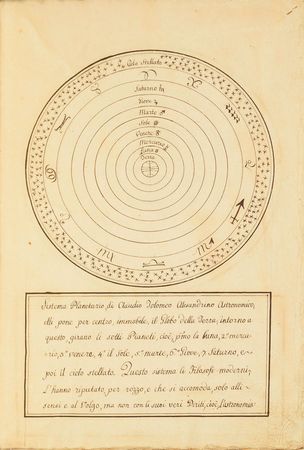 Cielo Stellato
Saturno ♄
Giove ♃
Marte ♂
Sole
Venere ♀
Mercurio ☿
Luna
Terra
Sistema Planetario di Claudio Tolomeo Alesandrino Astronomico,
elli pone per centro, immobile, il Globo della Terra, intorno a
questo girano li setti Pianeti, cioè, pmo la Luna, 2º mercu-
rio, 3º venere, 4º il Sole, 5º marte, 6º Giove, 7º Saturno, e,
poi il cielo stellato. Questo sistema li Filosofi moderni,
L'hanno riputato, per rozzo, e che si accomoda, solo alli
sensi e al Volgo, ma non con li suoi veri Periti, cioè l'astronomia